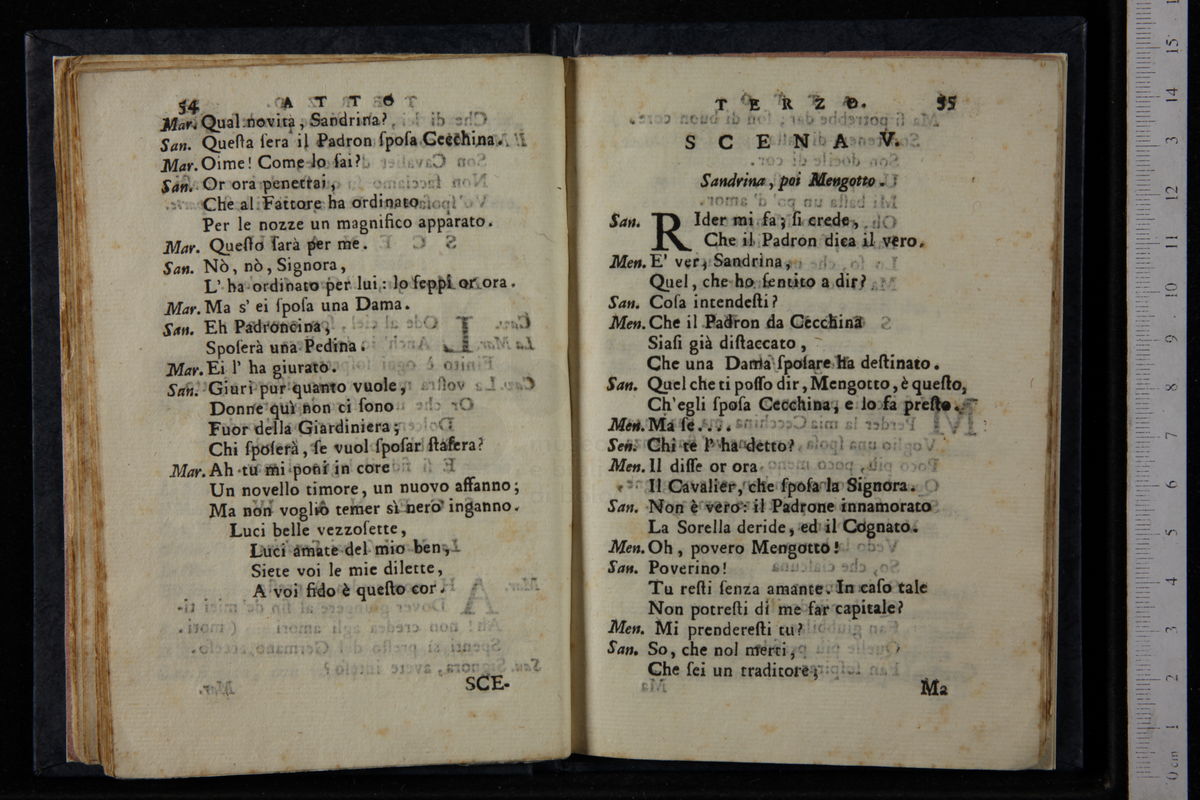 54 ATTO
Mar. Qual novità, Sandrina?
San. Queſta ſera il Padron ſpoſa Cecchina.
Mar. Oime! Come lo ſai?
San. Or ora penetrai,
Che al Fattore ha ordinato
Per le nozze un magnifico apparato.
Mar. Queſto ſarà per me.
San. Nò, nò, Signora,
L' ha ordinato per lui: lo ſeppi or ora.
Mar. Ma s' ei ſpoſa una Dama.
San. Eh Padroncina,
Spoſerà una Pedina.
Mar. Ei l' ha giurato.
San. Giuri pur quanto vuole,
Donne quì non ci ſono
Fuor della Giardiniera;
Chi ſpoſerà, ſe vuol ſpoſar ſtaſera?
Mar. Ah tu mi poni in core
Un novello timore, un nuovo affanno;
Ma non voglio temer sì nero inganno.
Luci belle vezzoſette,
Luci amate del mio ben,
Siete voi le mie dilette,
A voi fido è queſto cor.
SCE-
TERZO. 55
SCENA V.
Sandrina, poi Mengotto.
San. RIder mi fa; ſi crede,
Che il Padron dica il vero.
Men. E' ver, Sandrina,
Quel, che ho ſentito a dir?
San. Coſa intendeſti?
Men. Che il Padron da Cecchina
Siaſi già diſtaccato,
Che una Dama ſpoſare ha deſtinato.
San. Quel che ti poſſo dir, Mengotto, è queſto,
Ch'egli ſpoſa Cecchina, e lo fa preſto.
Men. Ma ſe....
Sen. Chi te l' ha detto?
Men. Il diſſe or ora
Il Cavalier, che ſpoſa la Signora.
San. Non è vero: il Padrone innamorato
La Sorella deride, ed il Cognato.
Men. Oh, povero Mengotto!
San. Poverino!
Tu reſti ſenza amante. In caſo tale
Non potreſti di me far capitale?
Men. Mi prendereſti tu?
San. So, che nol merti,
Che ſei un traditore;
Ma